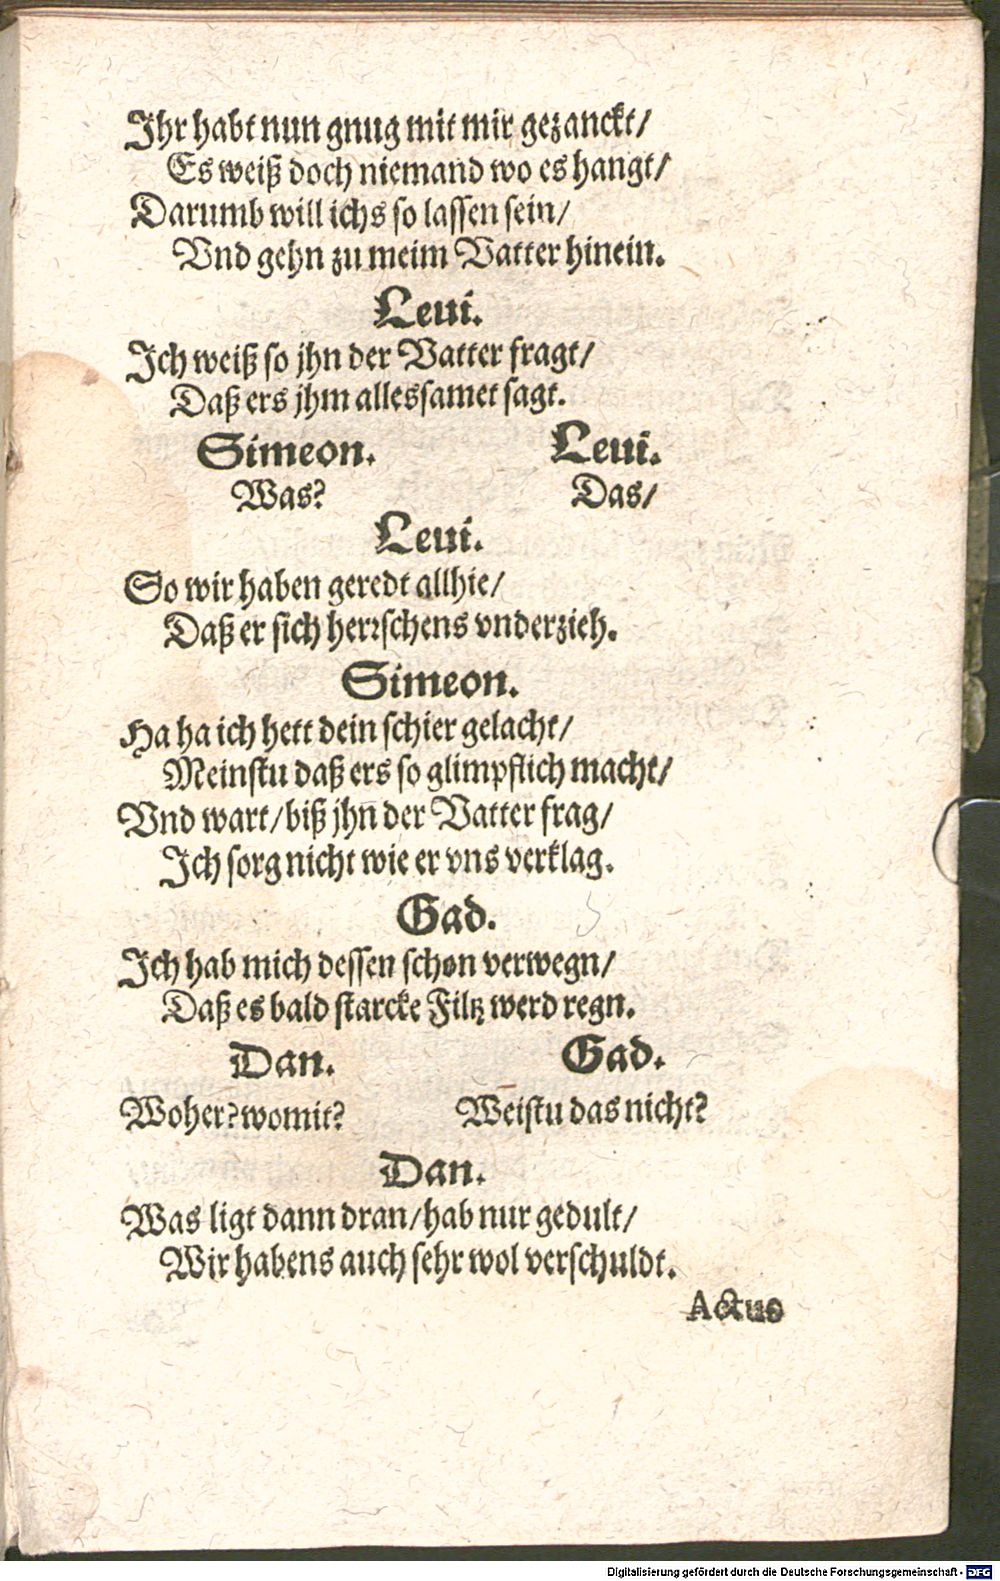 Ihr habt nun gnug mit mir gezanckt/
Es weiß doch niemand wo es hangt/
Darumb will ichs so lassen sein/
Vnd gehn zu meim Vatter hinein.
Leui.
Ich weiß so jhn der Vatter fragt/
Daß ers jhm allessamet sagt.
Simeon. Leui.
Was? Das/
Leui.
So wir haben geredt allhie/
Daß er sich herrschens vnderzieh.
Simeon.
Ha ha ich hett dein schier gelacht/
Meinstu daß ers so glimpflich macht/
Vnd wart/biß jhn̄ der Vatter frag/
Ich sorg nicht wie er vns verklag.
Gad.
Ich hab mich dessen schon verwegn/
Daß es bald starcke Filtz werd regn.
Dan. Gad.
Woher? womit? Weistu das nicht?
Dan.
Was ligt dann dran/hab nur gedult/
Wir habens auch sehr wol verschuldt.
Actus
Digitalisierung gefördert durch die Deutsche Forschungsgemeinschaft - DFG